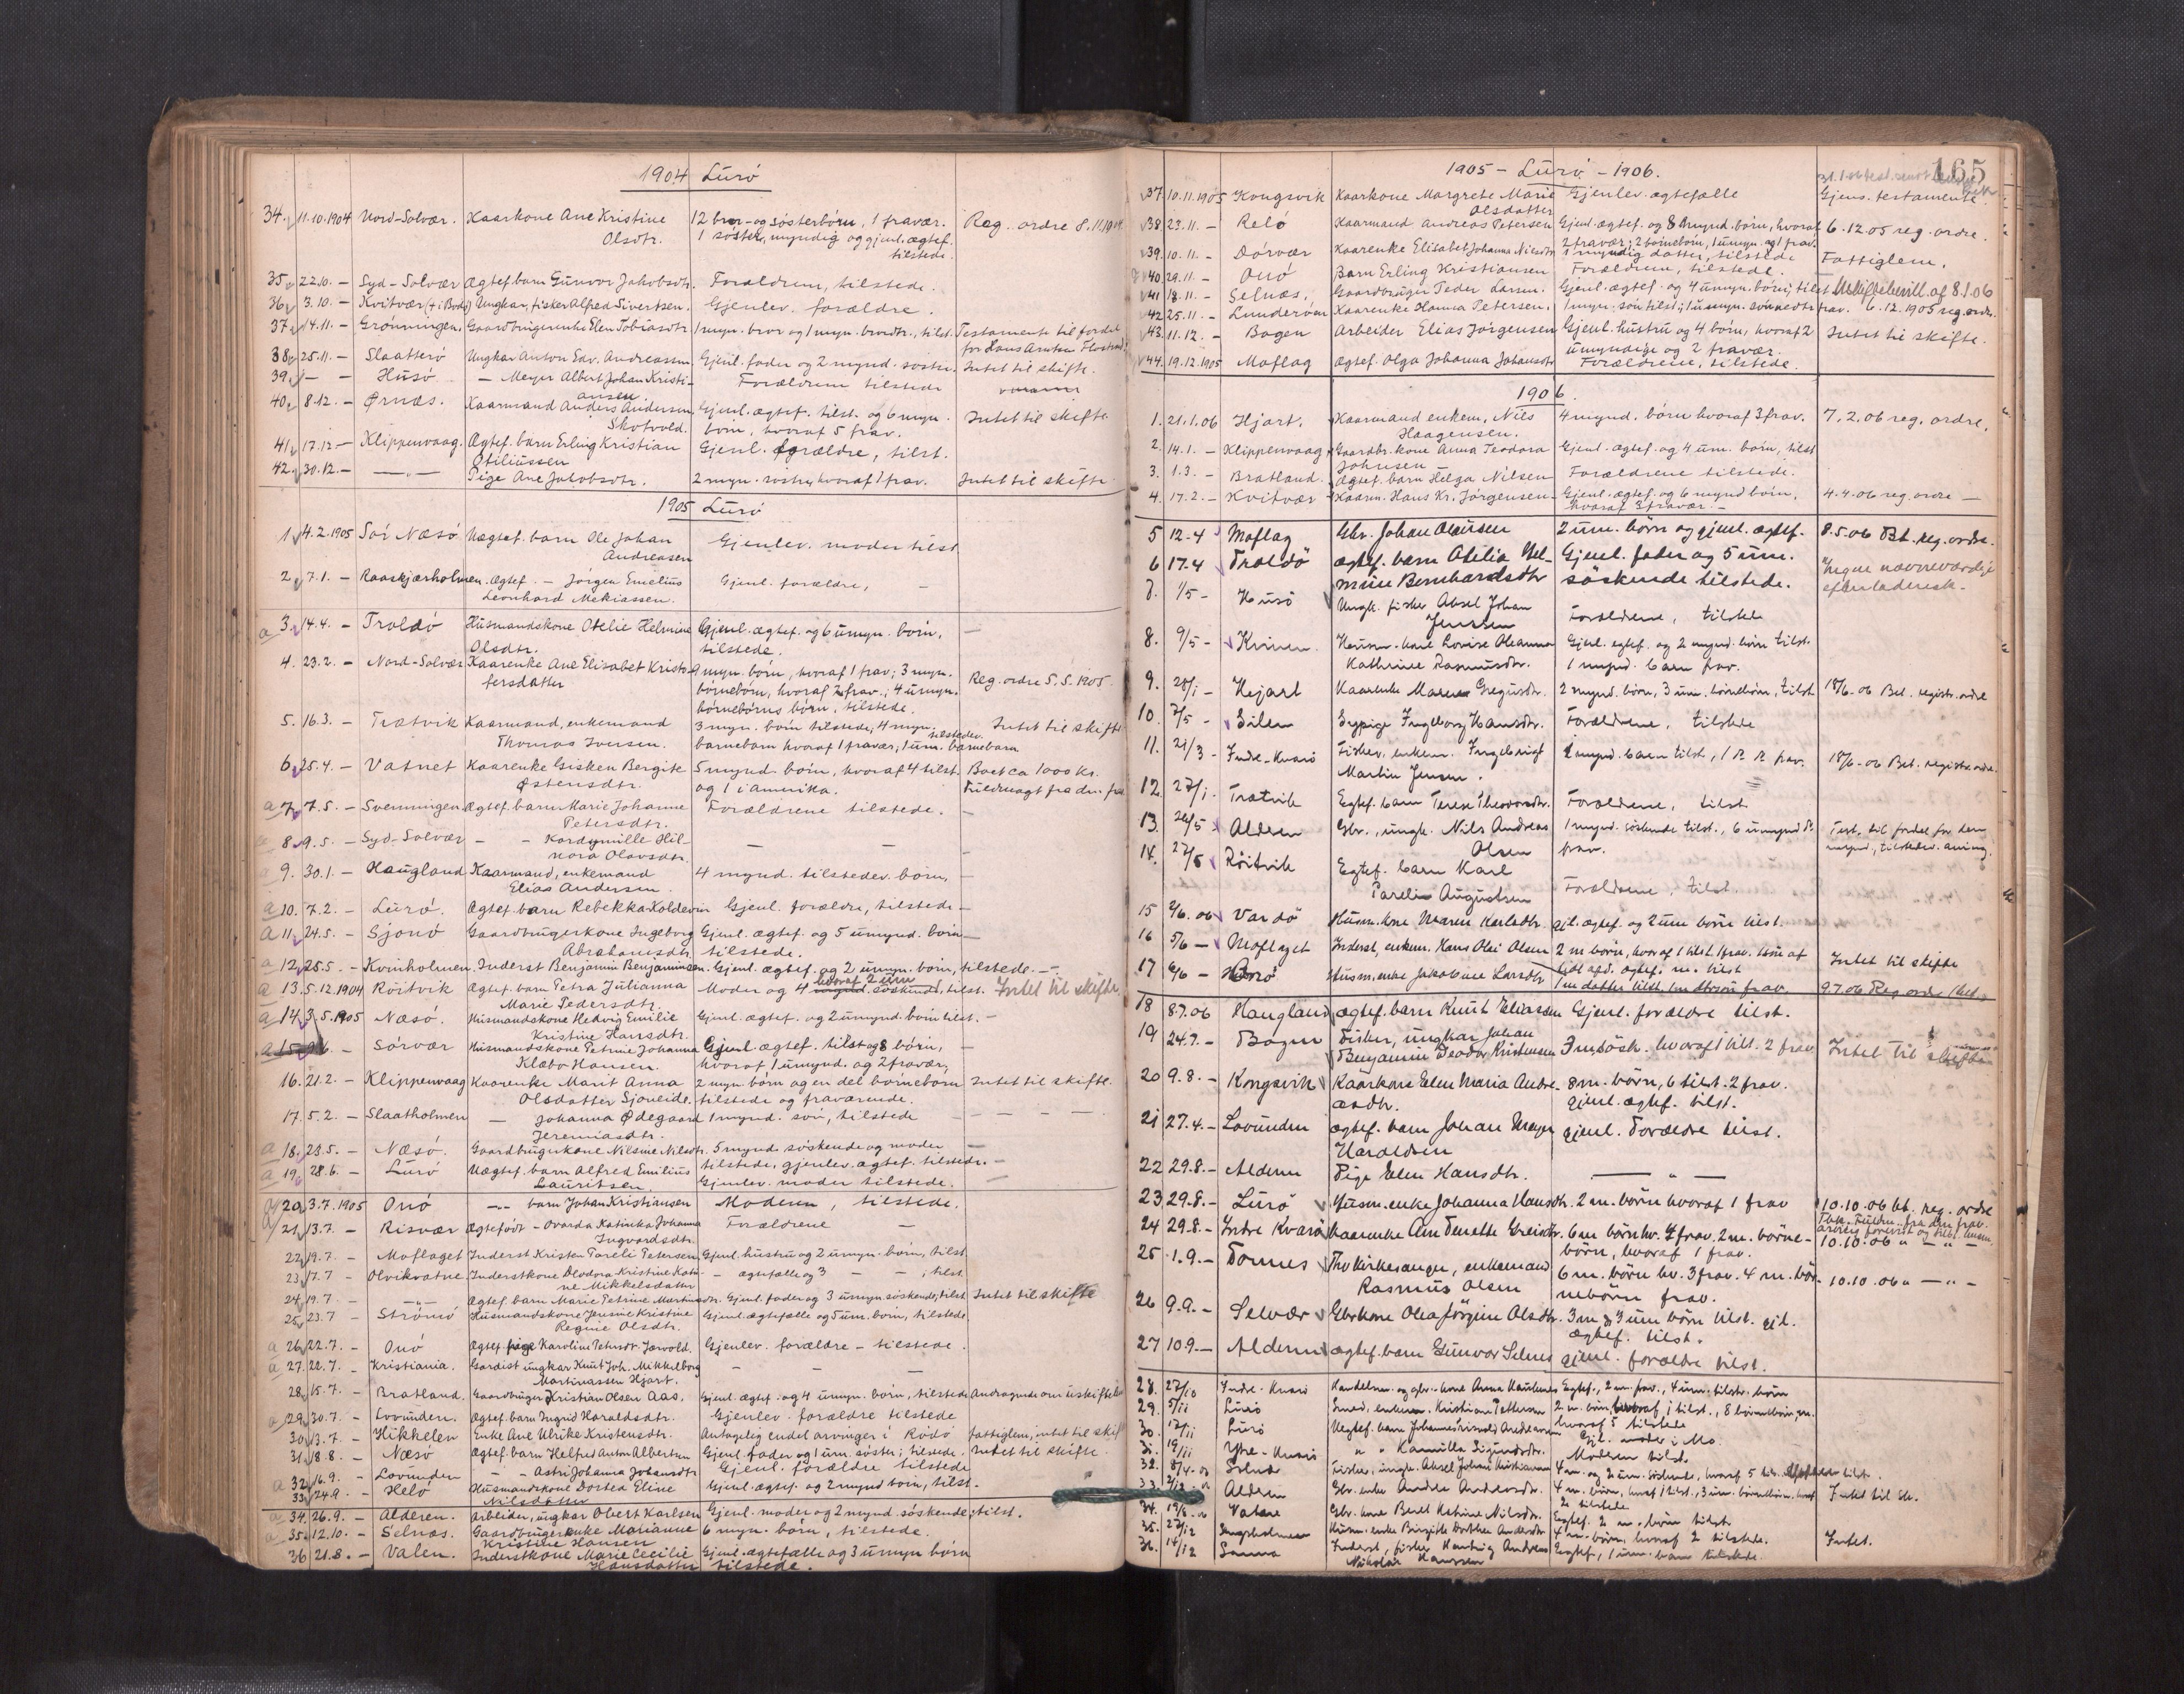 1904 Lurö
34. 11.10.1904 Nord-Solvær. Kaarkone Ane Kristine 12 bror- og sösterbörn, 1 fravær. Reg. ordre 8.11.1904
Olsdtr. 1 söster, myndig og gjenl. ægtef.
tilstede.
35. 22.10. – Syd-Solvær Ægtef. barn Gunvor Jakobsdtr. Forældrene, tilstede.
36. 3.10. – Kvitvær (+ i Bodö) Ungkar, fisker Alfred Sivertsen. Gjenlev. forældre.
37. 14.11. – Grönningen. Gaardbrugerenke Elen Tobiasdtr. 1 myn. bror og 1 myn. brordtr., tilst. Testamente til fordel
for Hans Arntsen
38. 25.11. – Slaatterö Ungkar Anton Edv. Andreassen Gjenl. fader og 2 mynd. söstre. Intet til skifte.
39. – – Husö – Meyer Albert Johan Kristi- Forældrene tilstede
ansen
40. 8.12. – Örnæs. Kaarmand Anders Andersen Gjenl. ægtef. tilst. og 6 myn. Intet til skifte
Skotvold. born, hvoraf 5 frav.
41. 17.12. – Klippenvaag. Ægtef. barn Erling Kristian Gjenl. forældre, tilst.
Otiliussen
42. 30.12. – –„– Pige Ane Jakobsdtr. 2 myn. söstre, hvoraf 1 frav. Intet til skifte
1905 Lurö
1. 4.2.1905 Sör Næsö Uægtef. barn Ole Johan Gjenlev. moder tilst
Andreasen
2. 7.1. – Raaskjærholmen. Ægtef. – Jörgen Emelius Gjenl. forældre, –
Leonhard Mekiassen.
a 3. 14.4. – Troldö Husmandskone Otelie Helmine Gjenl. ægtef. og 6 umyn. born, –
Olsdtr. tilstede.
4. 23.2. – Nord-Solvær Kaarenke Ane Elisabet Kristo- myn. börn, hvoraf 1 frav; 3 myn. Reg. ordre 5.5.1905
fersdatter börnebörn, hvoraf 2 frav.; 4 umyn.
börnebörns börn, tilstede.
5. 16.3. – Trætvik Kaarmand, enkemand 3 myn. börn tilstede, 4 myn. Intet til skifte
Thomas Iversen. barnebarn hvoraf 1 fravær, 1 um. barnebarn tilstedev.
6. 25.4. – Vatnet Kaarenke Gisken Bergite 5 mynd. börn, hvoraf 4 tilst. Boet ca 1000 kr.
Östensdtr. og 1 i Amerika. Fuldmagt fra den frav
a 7. 7.5. – Svenningen Ægtef. barn Marie Johanne Forældrene tilstede. –
Petersdtr.
8. 9.5. – Syd-Solvær – – Kordynille Hil- – – –
nora Olavsdtr.
a 9. 30.1. – Haugland Kaarmand, enkemand 4 mynd. tilstedev. börn, –
Elias Andersen.
a 10. 7.2. – Lurö. Ægtef. barn Rebekka Koldevin Gjenl. forældre, tilstede –
a 11. 24.5. – Sjonö Gaardbrugerkone Ingeborg Gjenl. ægtef. og 5 umynd. börn –
Abrahamsdtr. tilstede.
a 12. 25.5. – Kvinholmen. Inderst Benjamin Benjaminsen. Gjenl. ægtef. og 2 umyn. börn, tilstede. –
a 13. 5.12.1904 Röitvik Ægtef. barn Petra Julianna Moder og 4 hvoraf 2 um söskende, tilst. Intet til skifte.
Marie Pedersdtr.
a 14. 3.5.1905 Næsö. Husmandskone Hedvig Emilie Gjenl. ægtef. og 2 umynd. börn tilst. –
Kristine Hansdtr.
a 15. – Sörvær Husmandskone Petrine Johanna Gjenl. ægtef. tilst og 8 börn,
Klæbo Hansen. hvoraf, 1 umynd. og 2 fravær,
16. 21.2. – Klippenvaag Kaarenke Marit Anna 2 myn. börn og en del börnebörn Intet til skifte.
Olsdatter Sjoneide. tilstede og fraværende.
17. 5.2. – Slaatholmen – Johanna Ödegaard 1 mynd. sön, tilstede – – – –
Jeremiasdtr.
a 18. 23.5. – Næsö. Gaardbrugerkone Nilsine Nilsdtr. 5 mynd. söskende og moder –
tilstede, gjenlev. ægtef. tilstede. –
a 19. 28.6. – Lurö Uægtef. barn Alfred Emilius Gjenlev. moder tilstede. –
Lauritsen.
20. 3.7.1905 Onö –„– barn Johan Kristiansen Moderen, tilstede.
21. 13.7. – Risvær Ægtefödt – Ovarda Katinka Johanna Forældrene –
Ingvardsdtr.
22. 19.7. – Moflaget Inderst Kristen Toreli Petersen Gjenl. hustru og 2 umyn. börn, tilst.
23. 17.7 – Olvikvatne Inderstkone Deodora Kristine Kati- – ægtefælle og 3 – –, tilst.
ne Mikkelsdatter
24. 19.7. – –„– Ægtef. barn Marie Petrine Martinsdtr. Gjenl. fader og 3 umyn. söskende, tilst Intet til skifte
25. 23.7 – Strömö Husmandskone Jensine Kristine Gjenl. ægtefælle og 5 um. börn, tilstede.
Regine Olsdtr.
a 26. 22.7. – Onö Ægtef. pige Karoline Petersdtr. Jæwold. Gjenlev. forældre – tilstede.
a 27. 22.7. – Kristiania. Gardist ungkar Knut Joh. Mikkelborg – – –
Martinassen Hjart.
28. 15.7. – Bratland. Gaardbruger Kristian Olsen Aas. Gjenl. ægtef. og 4 umyn. börn, tilstede Andragende om uskiftet bo
a 29. 30.7. – Lovunden. Ægtef. barn Ingrid Haraldsdtr. Gjenlev. forældre tilstede
30. 13.7. – Hikkelen Enke Ane Ulrike Kristensdtr. Antagelig endel arvinger i Rödö fattiglem; intet til skif
31. 18.8. – Næsö Ægtef. barn Helfred Anton Albertsen Gjenl. fader og 1 um. söster; tilstede. Intet til skifte.
a 32. 16.9. – Lovunden – – Astri Johanna Johansdtr Gjenl. forældre tilstede
33. 24.9. – Helö Husmandskone Dortea Eline Gjenl. ægtef. og 2 mynd börn, tilst.
Nilsdatter
a 34. 26.9. – Alderen. Arbeider, ungkar Obert Karlsen Gjenl. moder og 2 mynd. söskende, tilst.
a 35. 12.10. – Selnæs. Gaardbrugerenke Marianne 6 myn. börn, tilstede.
Kristine Hansen
36 21.8. – Valen. Inderstkone Marie Cecilie Gjenl. ægtefælle og 3 umyn börn
Hansdatter tilstede.
1905 – Lurö – 1906.
165
37. 10.11.1905 Kongsvik Kaarkone Margrete Marie Gjenlev. ægtefælle Gjens. testamente.
Olsdatter
38 23.11. – Relö Kaarmand Andreas Petersen Gjenl. ægtef. og 8 mynd. börn, hvoraf 6.12.05 reg. ordre.
2 fravær; 2 börnebörn, 1 umyn. og 1 frav.
39. 10.11. – Dörvær Kaarenke Elisabet Johanna Nilsdtr 1 myndig datter, tilstede Fattiglem.
40 29.11. – Onö Barn Erling Kristiansen Forældrene, tilstede.
41 18.11. – Selnæs, Gaardbruger Peder Larsen. Gjenl. ægtef. og 4 umyn. börn, tilst Uskiftebevill. af 8.1.06
42 25.11. – Lunderöen Kaarenke Hanna Petersen. 1 myn. sön tilst; 1 umyn. sönnedtr frav. 6.12.1905 reg.ordre.
43. 11.12. – Bogen Arbeider Elias Jörgensen Gjenl. hustru og 4 börn, hvoraf 2 Intet til skifte.
umyndige og 2 fravær.
44. 19.12.1905 Moflag Ægtef. Olga Johanna Johansdtr Forældrene, tilstede.
1906.
1. 21.1.06 Hjart. Kaarmand enkem. Nils 4 mynd. börn hvoraf 3 frav. 7.2.06 reg. ordre.
Haagensen.
2. 14.1. – Klippenvaag Gaardbr. kone Anna Teodora Gjenl. ægtef. og 4 um. börn, tilst
Johnsen
3. 1.3. – Bratland. Ægtef. barn Helga Nilsen Forældrene tilstede.
4. 17.2. – Kvitvær Kaarm. Hans Kr. Jörgensen Gjenl. ægtef. og 6 mynd börn, 4.4.06 reg. ordre –
hvoraf 2 fravær. –
5 12.4 Moflag Gbr. Johan Olausen 2 um. börn og gjenl. ægtef. 8.5.06 Bet. reg. ordre.
6 17.4 Troldö Ægtef. barn Otelia Hel- Gjenl. fader og 5 um. Ingen nævneværdige
mine Bernhardsdtr söskende tilstede. efterladensk.
7. 1/5 – Husö Ungk. fisker Aksel Johan Forældrene, tilstede
Jenssen
8. 9/5 – Kvinen. Husm. kone Lovise Oleanna Gjenl. egtef. og 2 mynd. börn tilst.
Kathrine Rasmusdtr. 1 mynd. barn frav.
9. 28/1 – Hejart Kaarenke Maren Gregusdtr. 2 mynd. börn, 3 um. börnebörn, tilst. 18/6-06 Bet. registr. ordre
10. 7/5 – Silen Sypige Ingeborg Hansdtr. Forældrene, tilstede
11. 21/3 – Indre-Kvarö Fisker, enkem. Ingebrigt 1 mynd. barn tilst, 1 frav. 18/6-06 Bet. registr. ordre.
Martin Jensen.
12. 27/1. Trætvik Egtef. barn Terese Theodorsdtr. Forældrene, tilst
13. 26/5 Aldren Gbr., ungk. Nils Andreas 1 mynd. söskende tilst., 6 umynd Do. Test. til fordel for den
Olsen frav. mynd., tilstedev. arving.
14. 27/5 Röitvik Egtef. barn Karl
Parelin Augustsen Forældrene, tilst.
15 2/6.06 Vardö Husm. kone Maren Karlsdtr. gjl. ægtef. og 2 um börn tilst.
16 5/6 – Moflaget Inderst, enkem. Hans Olai Olsen 2 m börn, hvoraf 1 tilst. 1 frav. Intet til skifte
tidl. afd. ægtef. m. tilst
17 6/6 – Husm. enke Jakobine Larsdtr 1 m datter tilst. frav. 9.7.06 Reg ordre (bet.)
18 8.7.06 Haugland ægtef. barn Knut Eliassen Gjenl. forældre tilst.
19 24.7. – Bogen Fisker, ungkar Johan
Benjamin Deodor Kristensen 3 m. sösk. hvoraf 1 tilst. 2 frav Intet til skifte
20 9.8. – Kongsvik Kaarkone Elen Maria Andre- 8 m. börn, 6 tilst. 2 frav.
asdtr. gjenl. ægtef. tilst.
21 27.4. – Lovunden ægtef. barn Johan Meyer gjenl. Forældre tilst.
Haraldsen
22 29.8. – Alderen Pige Elen Hansdtr. –„–
23 29.8. – Lurö Husm. enke Johanna Hansdtr. 2 m. börn hvoraf 1 frav 10.10.06 bt. reg. ordre
24 29.8. – Indre Kvarö Kaarenke Ane Benette Greisdtr. 6 m börn hv. 4 frav. 2 m. börne- 10.10.06 „ – „ –
börn, hvoraf 1 frav.
25 1.9. – Tonnes Fhv Kirkesanger, enkemand 6 m. börn hv. 3 frav. 4 m. bör- 10.10.06 „ – „ –
Rasmus Olsen nebörn frav.
26 9.9. – Selvær Gbrkone Olea Jörgine Olsdtr. 3 m og 3 um börn tilst. gjl.
ægtef. tilst.
27 10.9. – Alderen ægtef. barn Gunvor Selnes gjenl. forældre tilst.
28. 27/10 Indre-Kvarö Handelsm. og gbr.-kone Anna Egtef., 2 m. frav., 4 um. tilstv. börn
29. 5/11 Lurö Smed, enkem. Kristian Pettersen 2 m. börn hvoraf 1 tilst., 8 börnebörn
hvoraf 5 tilstede
30. 17/11 Lurö Uegtef. barn Johannes Gjl. moder i Mo.
31. 19/11 Ytre-Kvarö „ „ Kamilla Sigurdsdtr. Moderen tilst.
32. Fisker, ungk. Aksel Johan Kristiansen 4 m. og 2 um. söskende, hvoraf 5 tilst.
33. Aldren Gbr. enke Andrea Andersdtr. 4 m. börn, hvoraf 1 tilst., 3 um. börnebörn Intet til sk.
2 tilstede
34. Gbr. kone Berit Katrine Nilsdtr. Egtef. 2 m. börn tilst.
35. 27/12 Husm. enke Birgitte Dorthea Andersdtr 4 m. börn, hvoraf 2 tilstede.
36. 14/12 Sanna Inderst, fisker Hartvig Andreas Egtef, 1 um. barn tilstede. Intet.
Nikolai Hanssen